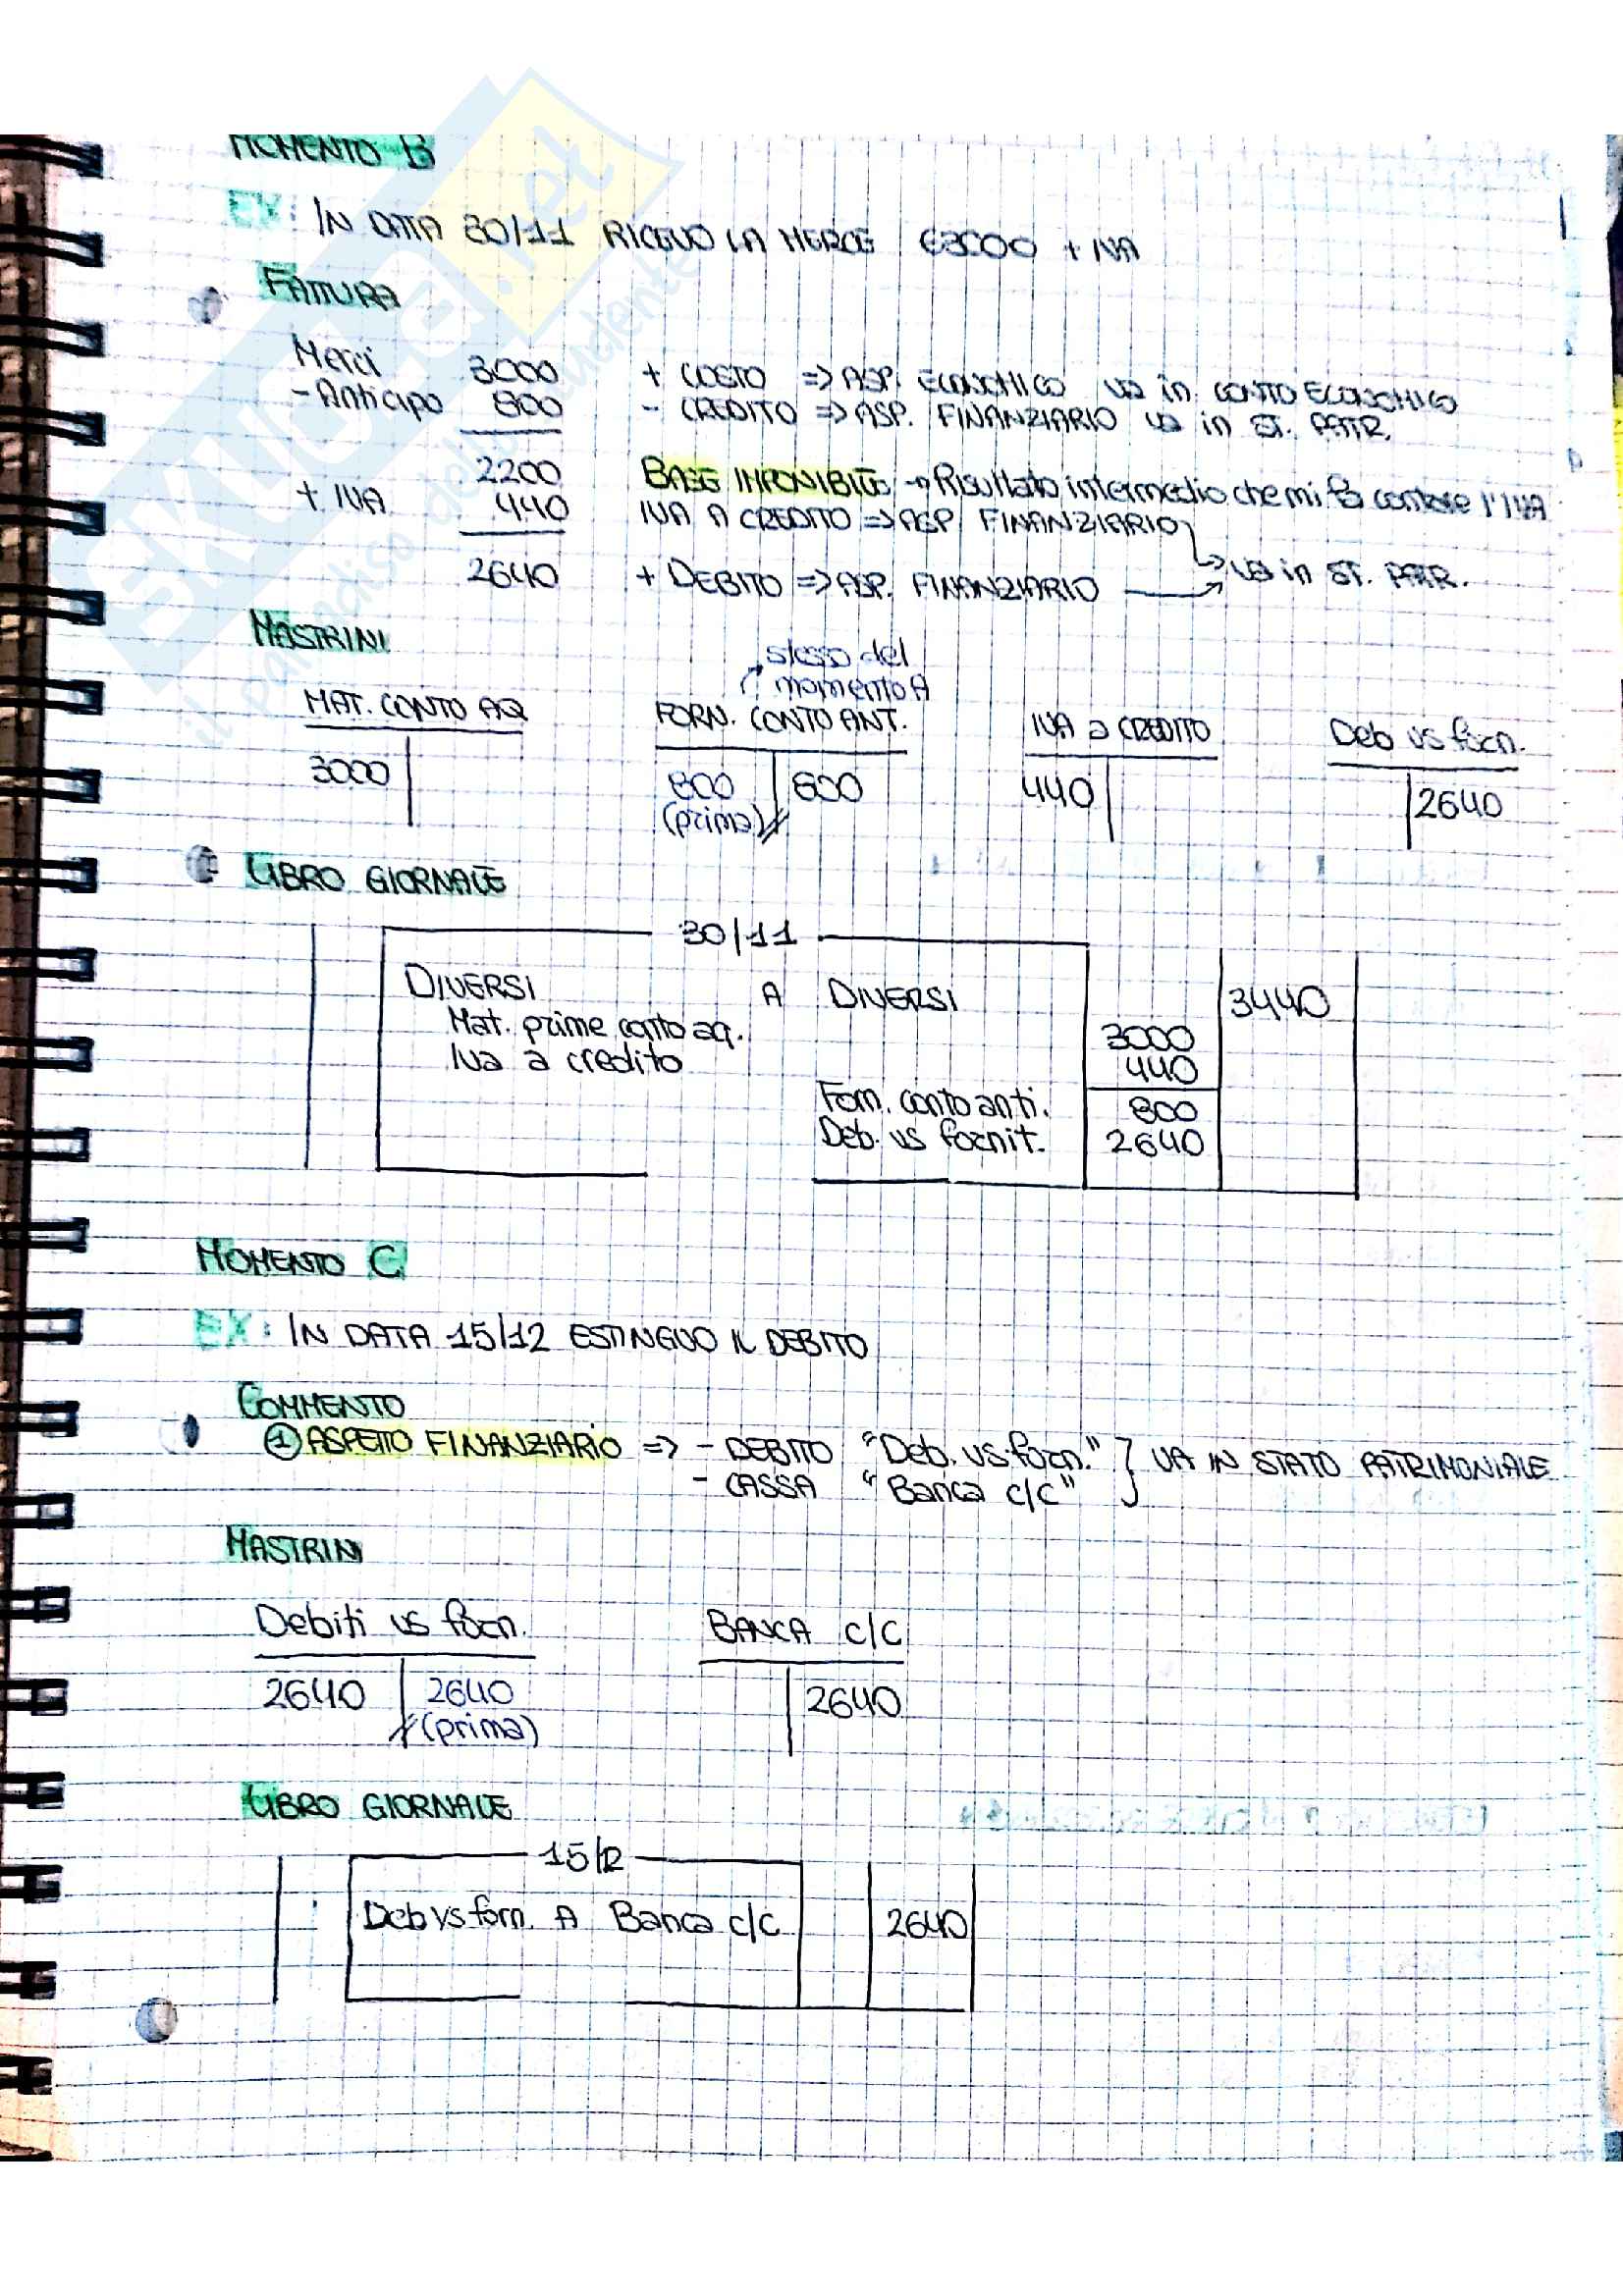 MOMENTO B
EX: IN DATA 30/11 RICEVO LA MERCE €3000 + IVA
FATTURA
Merci 3000 + COSTO => ASP. ECONOMICO va in CONTO ECONOMICO
- Anticipo 800 - CREDITO => ASP. FINANZIARIO va in ST. PATR.
2200 BASE IMPONIBILE → Risultato intermedio che mi fa contare l'IVA
+ IVA 440 IVA A CREDITO => ASP. FINANZIARIO
2640 + DEBITO => ASP. FINANZIARIO va in ST. PATR.
MASTRINI
stesso del
momento A
MAT. CONTO AQ FORN. CONTO ANT. IVA a CREDITO Deb vs forn.
3000 800 800 440 2640
(prima)
LIBRO GIORNALE
30/11
DIVERSI A DIVERSI 3440
Mat. prime conto aq. 3000
Iva a credito 440
Forn. conto anti. 800
Deb. vs fornit. 2640
MOMENTO C
EX: IN DATA 15/12 ESTINGUO IL DEBITO
COMMENTO
① ASPETTO FINANZIARIO => - DEBITO "Deb. vs forn." } VA IN STATO PATRIMONIALE
- CASSA "Banca c/c"
MASTRINI
Debiti vs forn. BANCA c/c
2640 2640 2640
(prima)
LIBRO GIORNALE
15/12
Deb vs forn. A Banca c/c 2640
SKUOLA.net
il paradiso dello studente